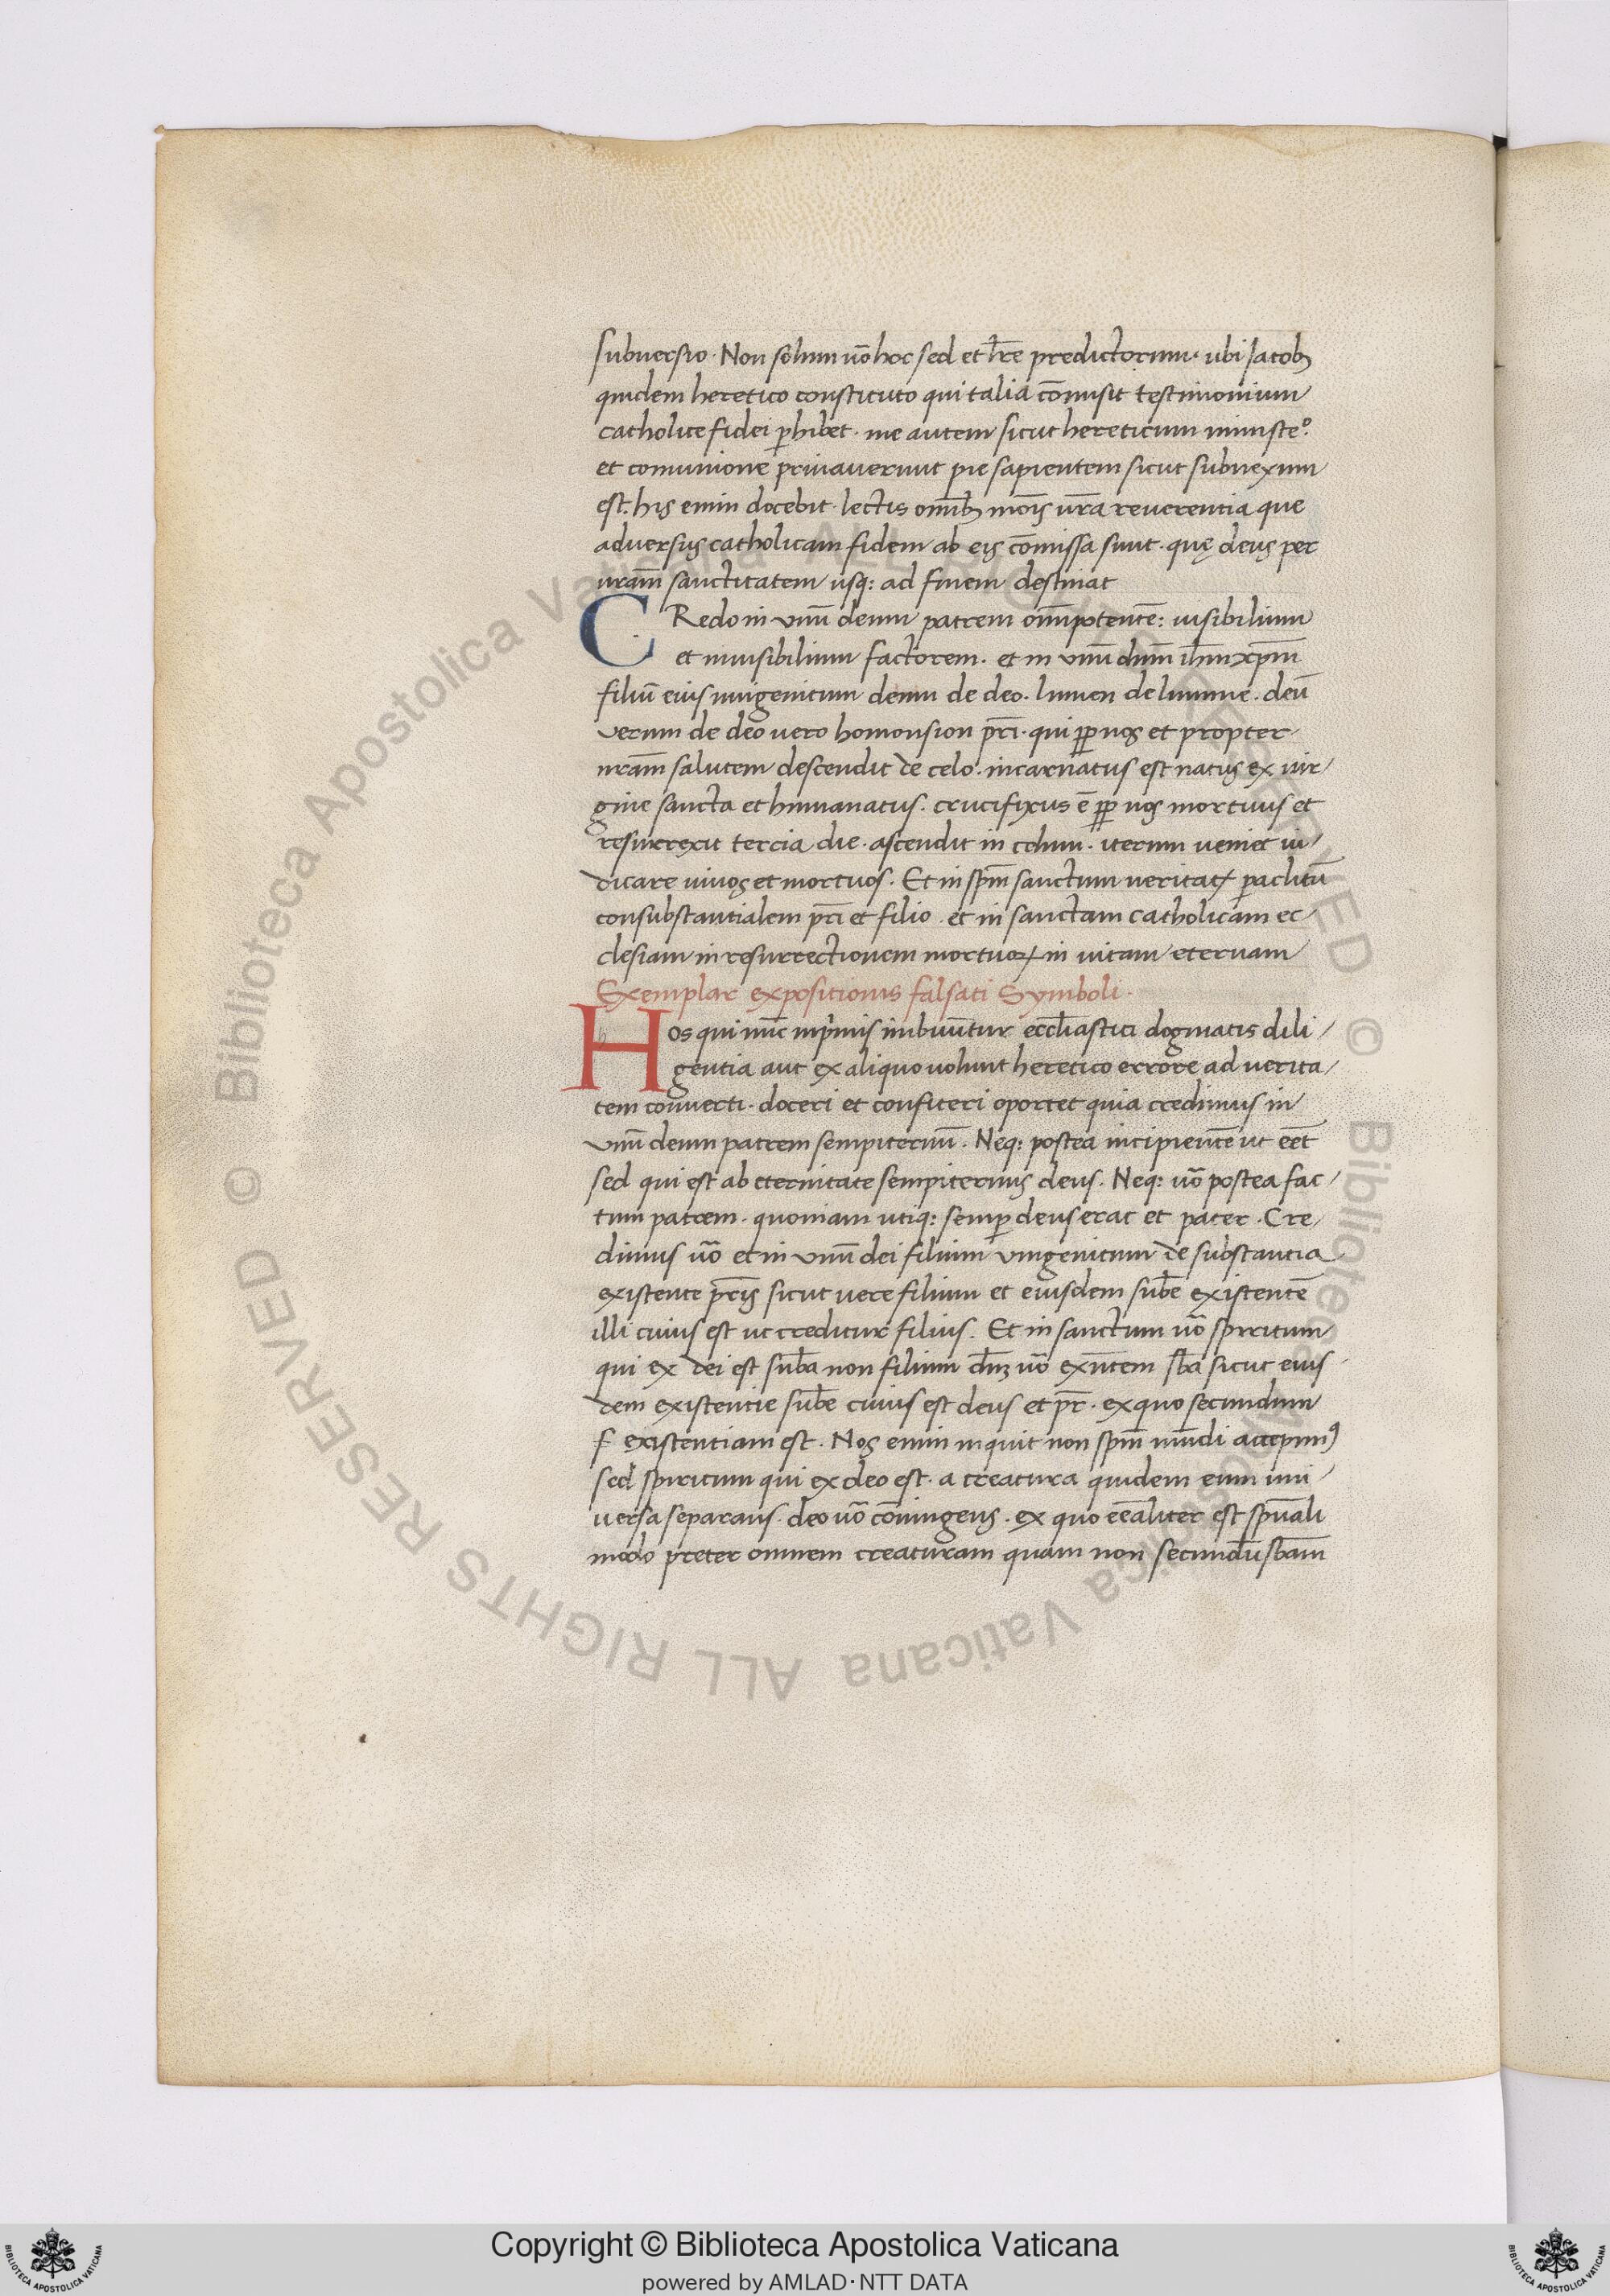 subuersio. Non solum uo̅ hoc sed et lr̅e predictorum. ubi Jacob
quidem heretico constituto qui talia co̅misit testimonium
catholice fidei p̲hibet. me autem sicut hereticum ministe.º
et comunione priuauerunt pie sapientem sicut subnexum
est. his enim docebit. lectis om̅ib; ur̅a reuerentia que
aduersus catholicam fidem ab eis co̅missa sunt. quę deus per
ur̅am sanctitatem usq: ad finem destruat
CRedo in vnu̅ deum patrem om̅ipotente̅: uisibilium
et inuisibilium factorem. et in vnu̅ dn̅m ih̅m xp̅m
filiu̅ eius unigenitum deum de deo. lumen de lumine. deu̅
verum de deo uero homousion pr̅i. qui pp̲ nos et propter
nr̅am salutem descendit de celo. incarnatus est natus ex uir/
gine sancta et humanatus. crucifixus e̅ pp̲ nos mortuus et
resurrexit tercia die. ascendit in celum. iterum ueniet iu/
dicare uiuos et mortuos. Et in sp̅m sanctum ueritatꝭ p̲aclitu̅
consubstantialem pr̅i et filio. et in sanctam catholicam ec/
clesiam in resurrectionem mortuoꝝ in uitam eternam
Exemplar expositionis falsati Symboli.
Hos qui nu̅c inp̲mis imbuu̅tur eccl̅iastici dogmatis dili/
gentia aut ex aliquo uolunt heretico errore ad uerita/
tem conuerti. doceri et confiteri oportet quia credimus in
vnu̅ deum patrem sempiternu̅. Neq: postea incipiente̅ ut ee̅t
sed qui est ab eternitate sempiternus deus. Neq: uo̅ postea fac/
tum patrem. quoniam utiq: semp̲ deus erat et pater. Cre/
dimus uo̅ et in vnu̅ dei filium vnigenitum de substantia
existente pr̅is sicut uere filium et eiusdem sub̅e existente̅
illi cuius est ut creditur filius. Et in sanctum uo̅ spiritum
qui ex dei est sub̅a non filium uo̅ exn̅tem sb̅a sicut eius
dem existentie sub̅e cuius est deus et pr̅. ex quo secundum
f existentiam est. Nos enim inquit non sp̅m mu̅di accepimꝰ
sed spiritum qui ex deo est. a creatura quidem eum uni/
uersa separans. deo uo̅ co̅niungens. ex quo ee̅aliter est sp̅uali
modo preter omnem creaturam quam non secundu̅ sb̅am
© Biblioteca Apostolica Vaticana ALL RIGHTS RESERVED © Biblioteca Apostolica Vaticana ALL RIGHTS RESERVED
Copyright © Biblioteca Apostolica Vaticana
powered by AMLAD·NTT DATA
BIBLIOTECA APOSTOLICA VATICANA
BIBLIOTECA APOSTOLICA VATICANA